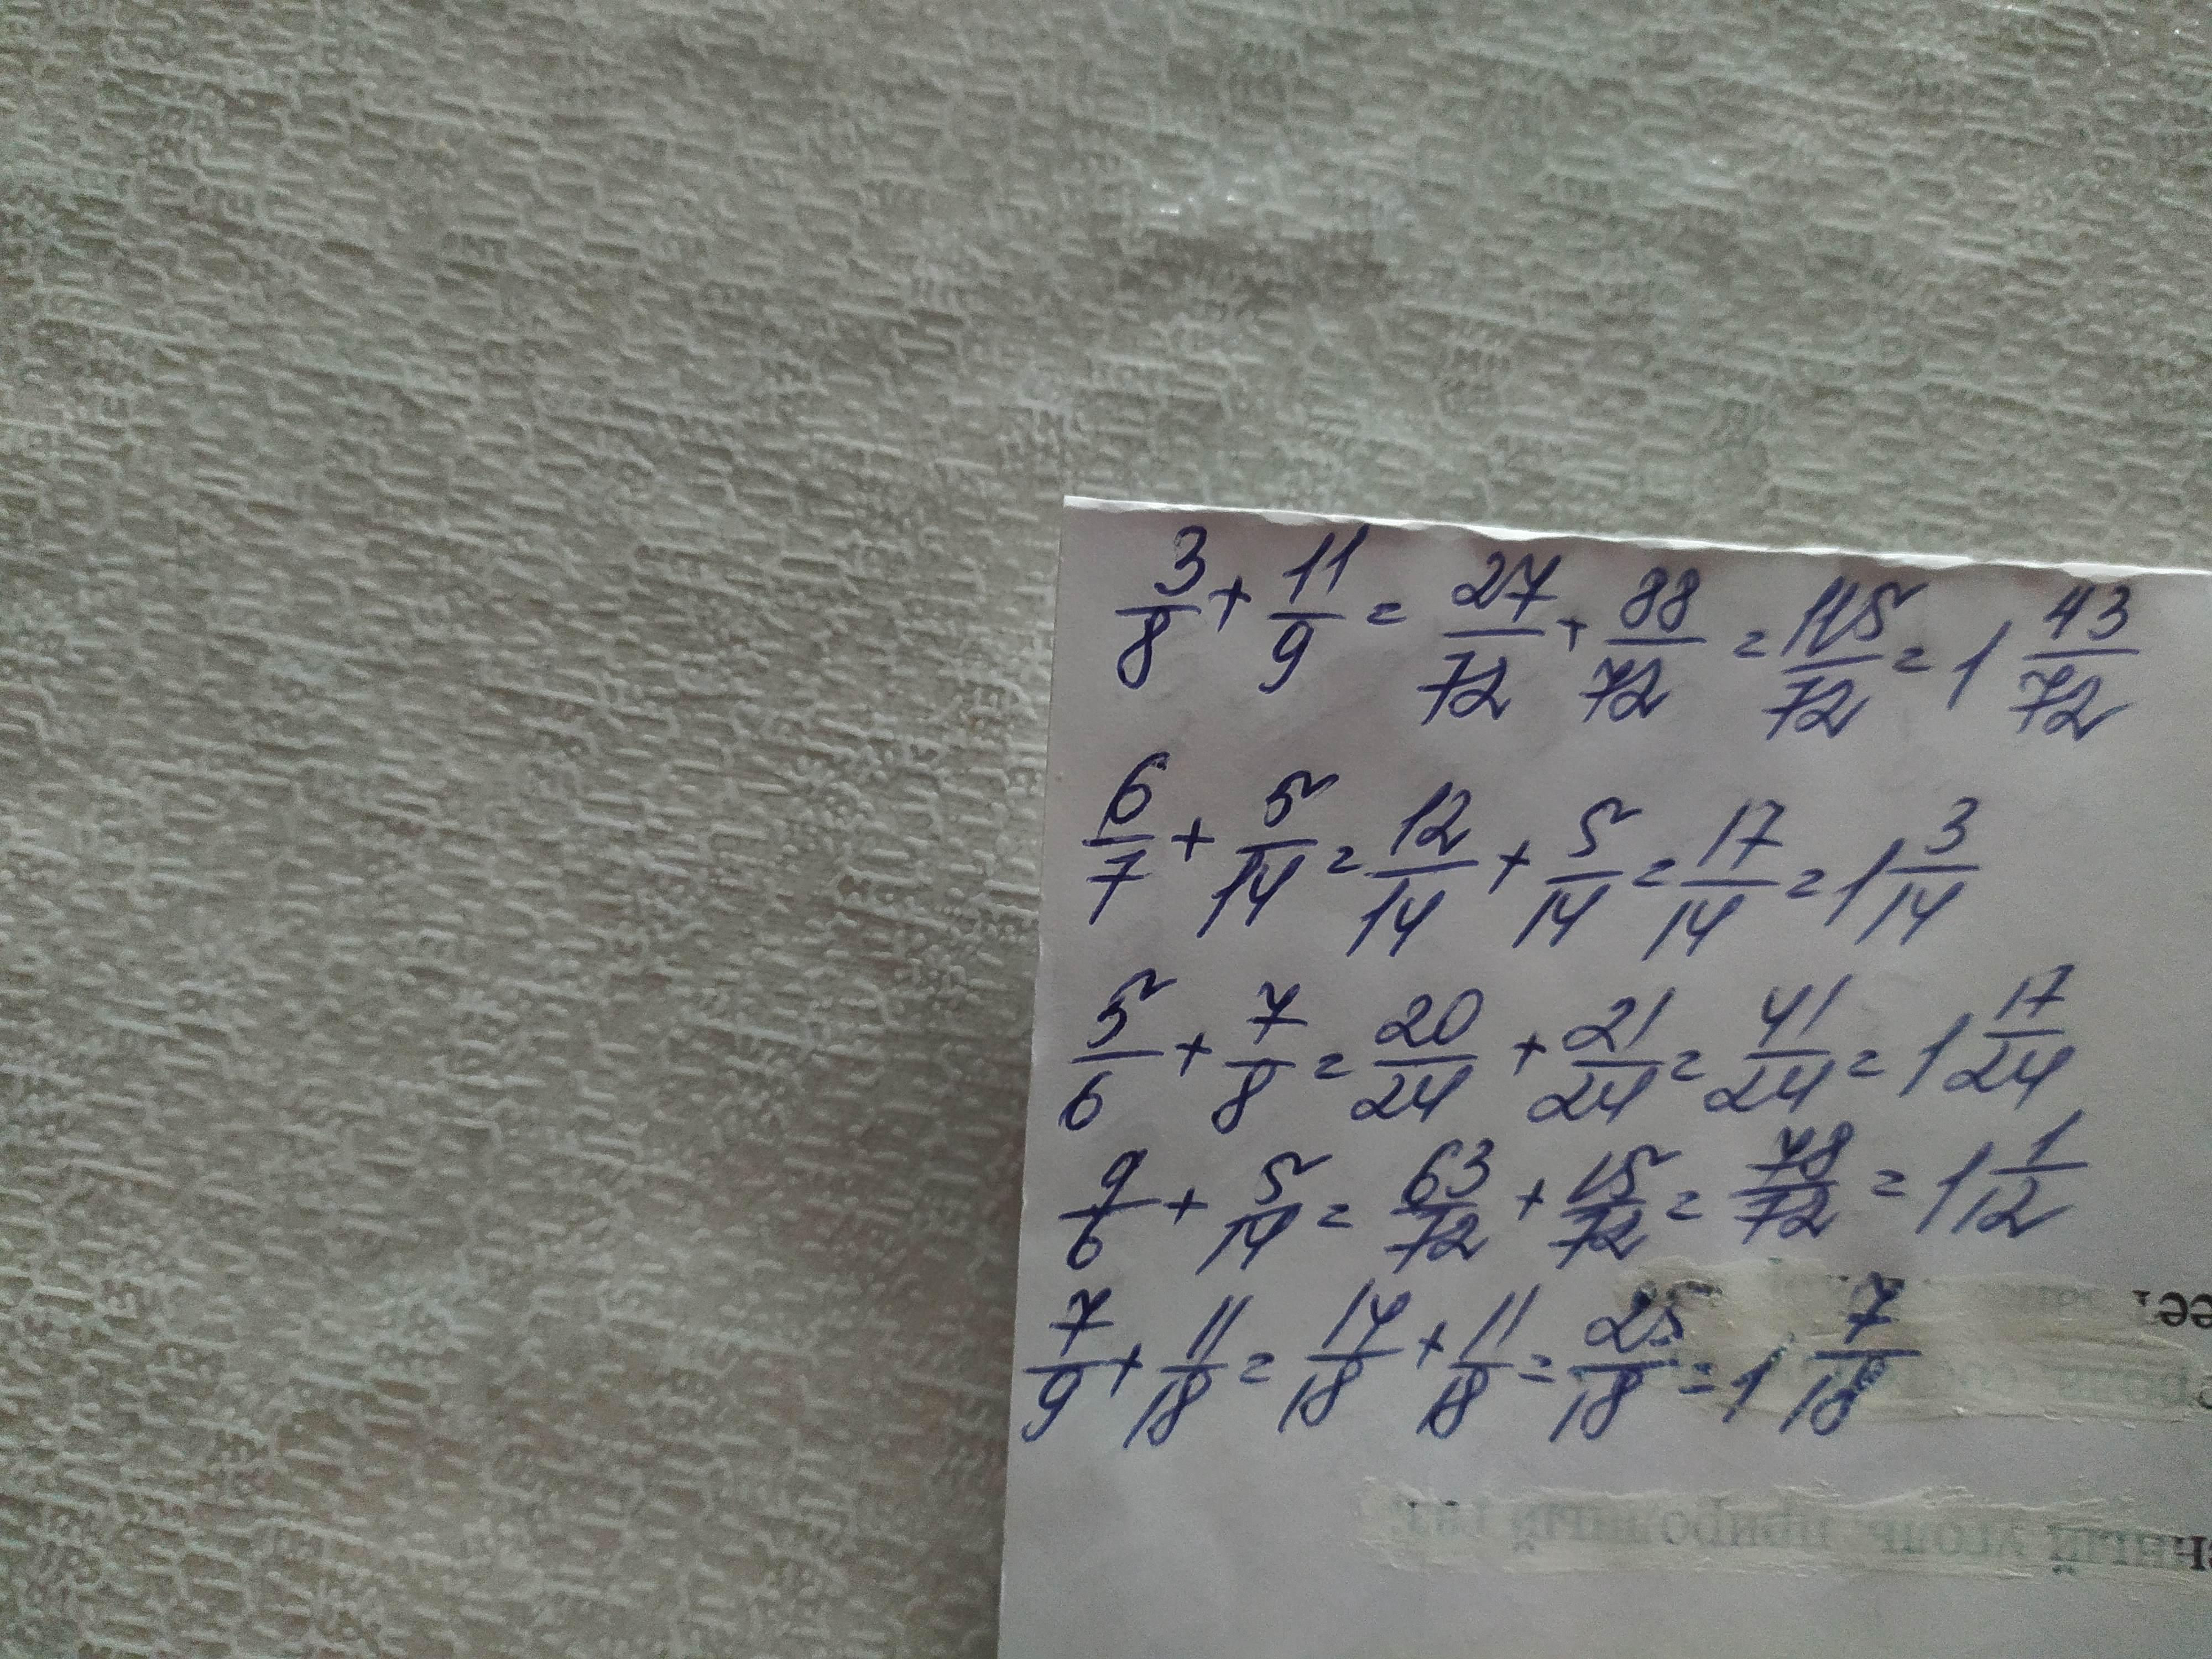 3/8 + 11/9 = 27/72 + 88/72 = 115/72 = 1 43/72
6/7 + 5/14 = 12/14 + 5/14 = 17/14 = 1 3/14
5/6 + 7/8 = 20/24 + 21/24 = 41/24 = 1 17/24
9/6 + 5/14 = 63/72 + 15/72 = 78/72 = 1 1/12
7/9 + 11/18 = 14/18 + 11/18 = 25/18 = 1 7/18